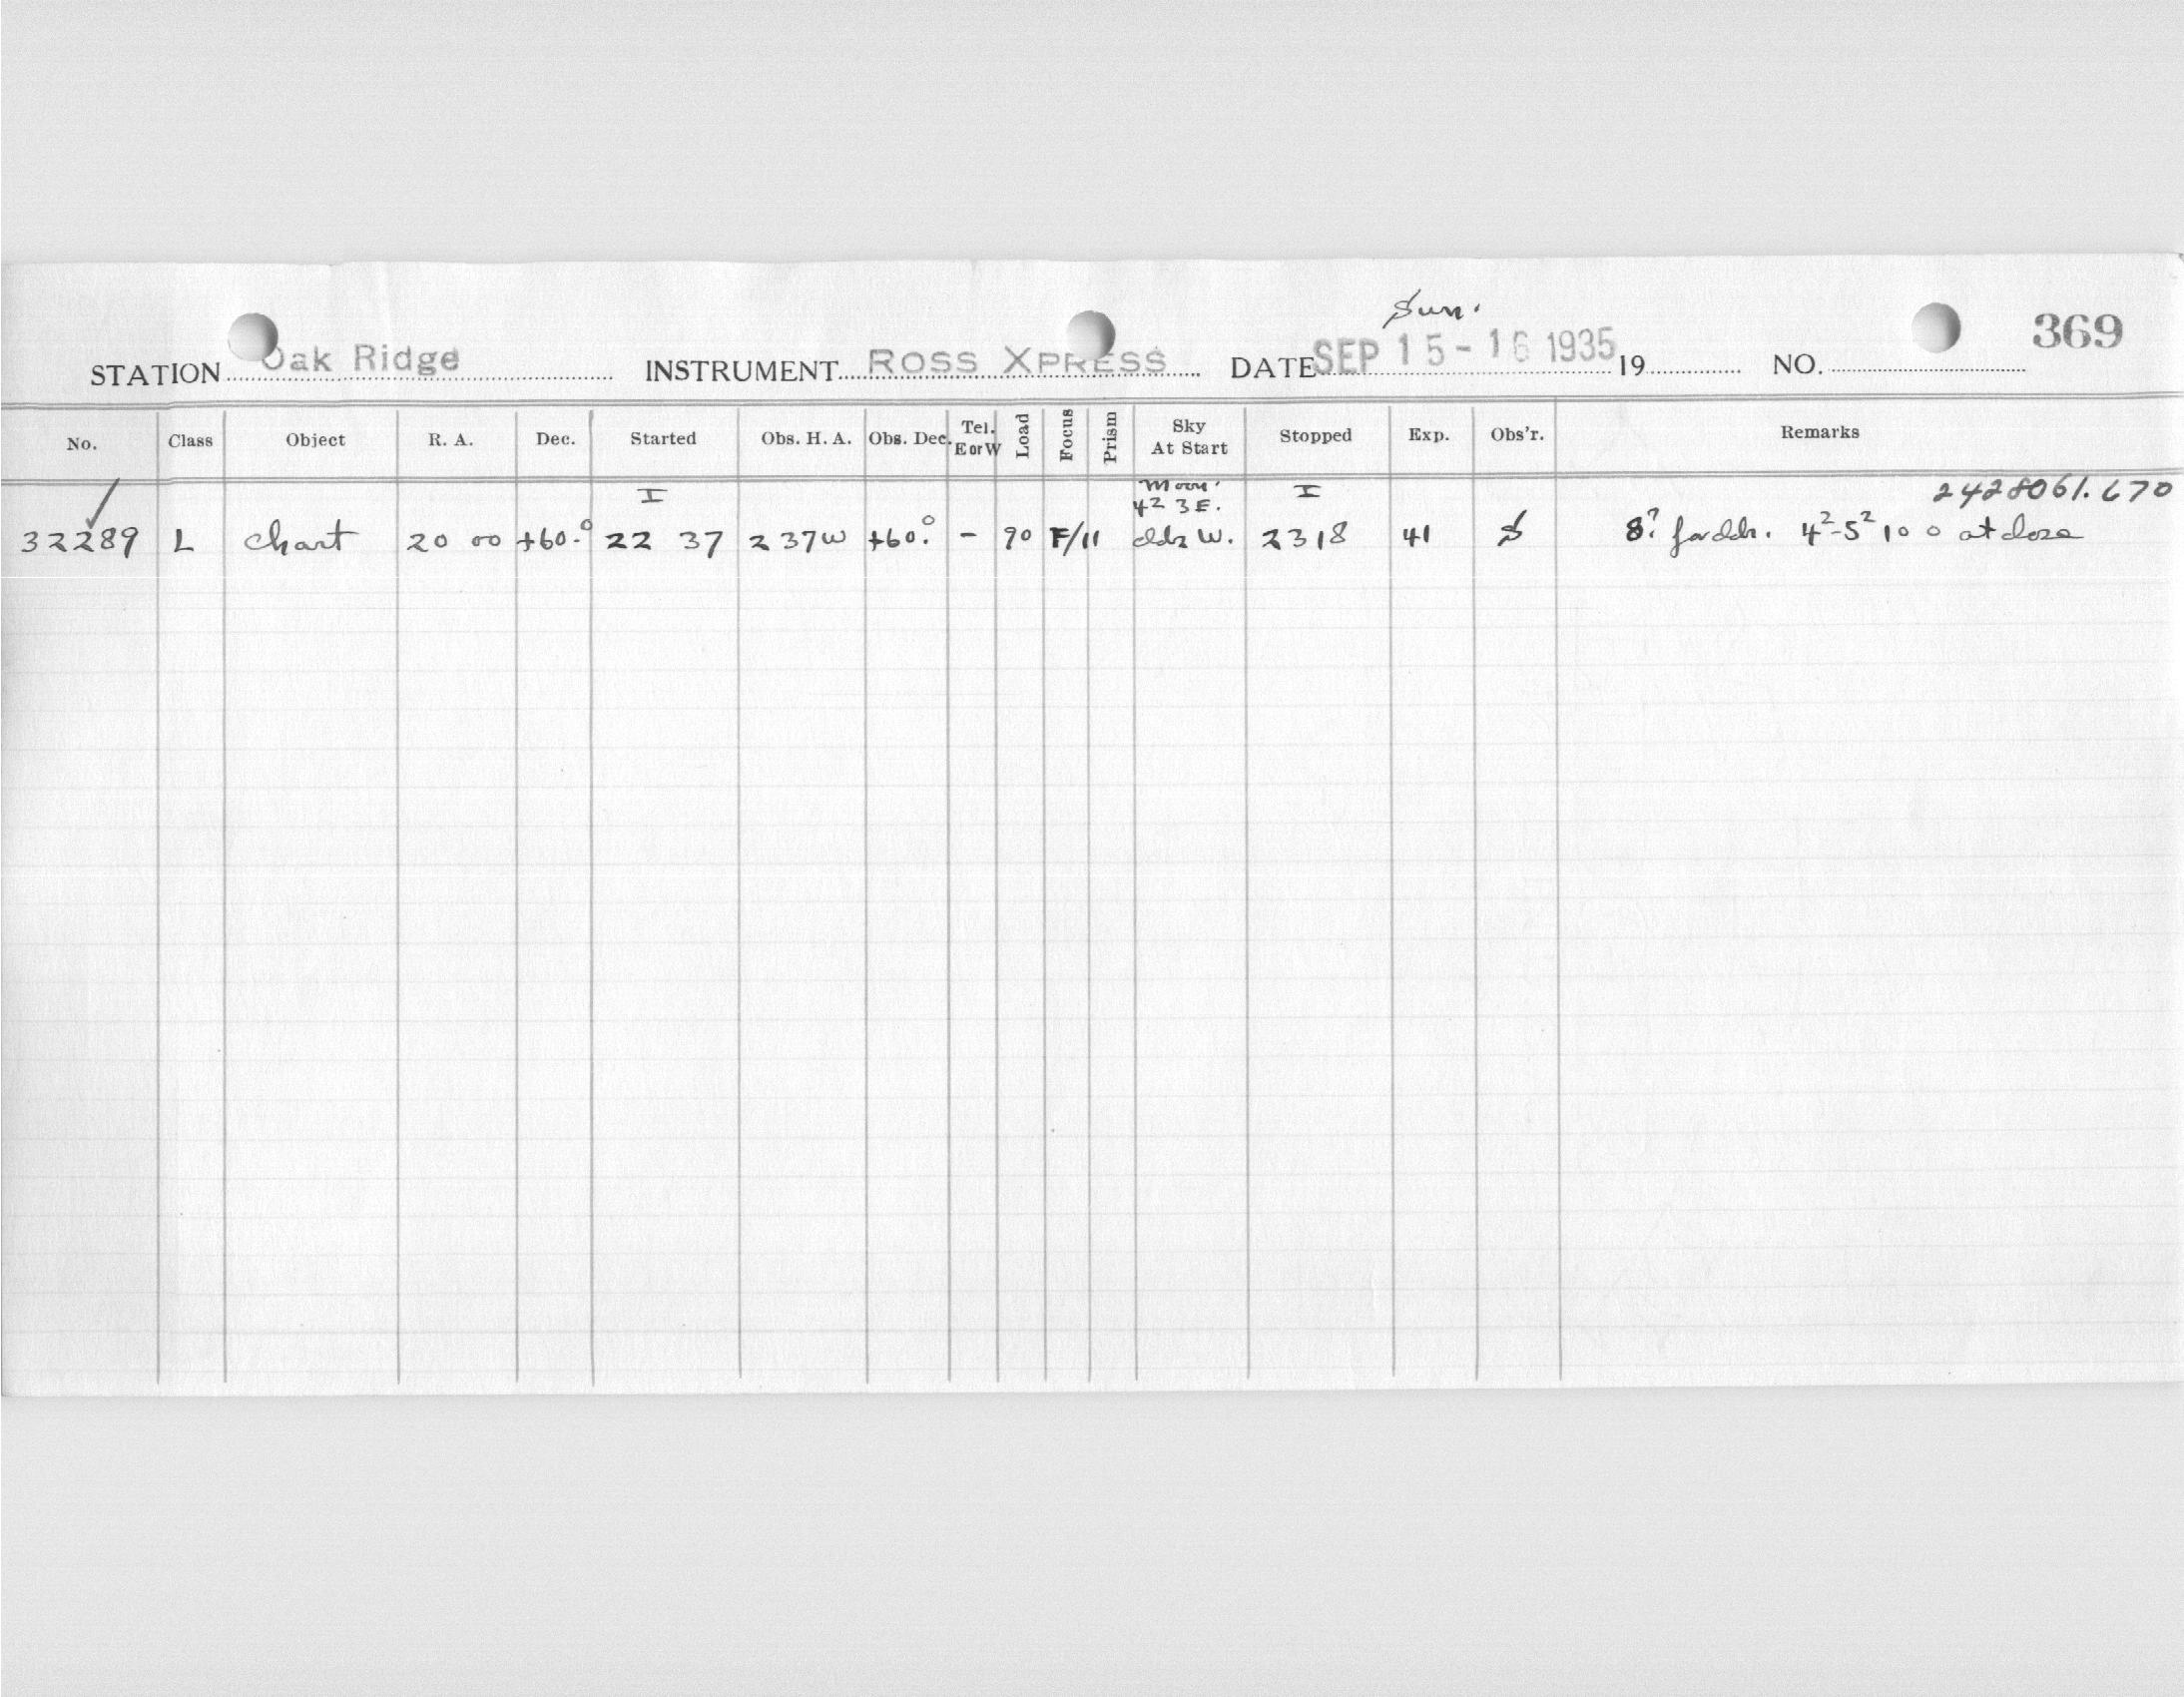 Sun.
369
STATION Oak Ridge INSTRUMENT ROSS XPRESS DATE SEP 15-16 1935 19 NO.
No. Class Object R. A. Dec. Started Obs. H. A. Obs. Dec. Tel. E or W Load Focus Prism Sky At Start Stopped Exp. Obs'r. Remarks
I Moon. I 2428061.670
4² 3 E.
32289 L Chart 20 00 +60.° 22 37 2 37 W +60.° - 90 F/11 clds W. 23 18 41 S 8? for clds. 4²-5² 10 0 at close